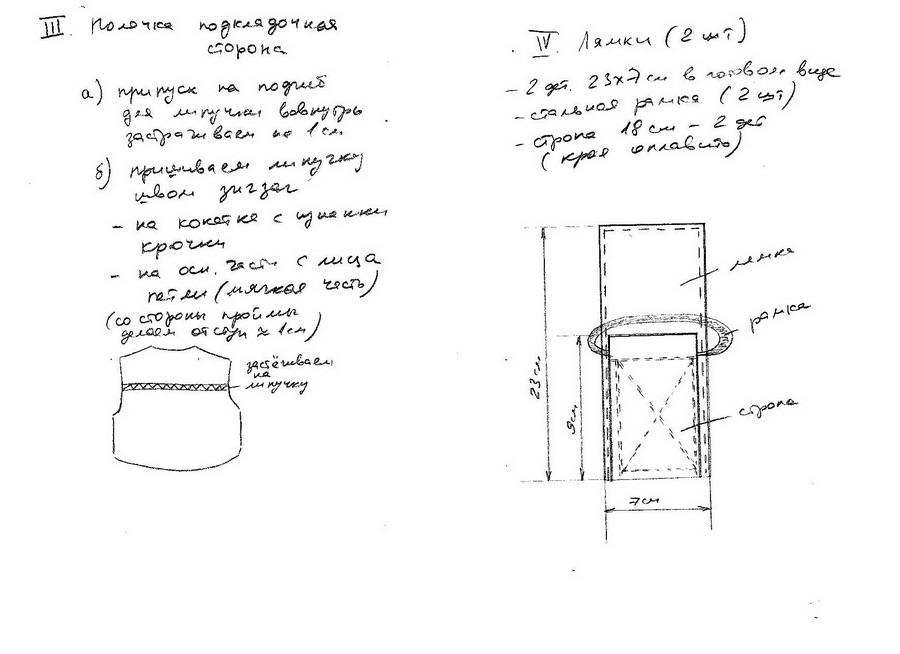 III. Полочка подкладочная
сторона
а) припуск на подгиб
для липучки вовнутрь
застрачиваем на 1 см
б) пришиваем липучку
швом зигзаг
- на кокетке с изнанки
крючки
- на осн. части с лица
петли (мягкая часть)
(со стороны проймы
делаем отступ ≈ 1 см)
застёгиваем
на
липучку
IV. Лямки (2 шт)
- 2 дет. 23х7 см в готовом виде
- стальная рамка (2 шт)
- стропа 18 см - 2 дет
(края оплавить)
лямка
рамка
стропа
23 см
9 см
7 см